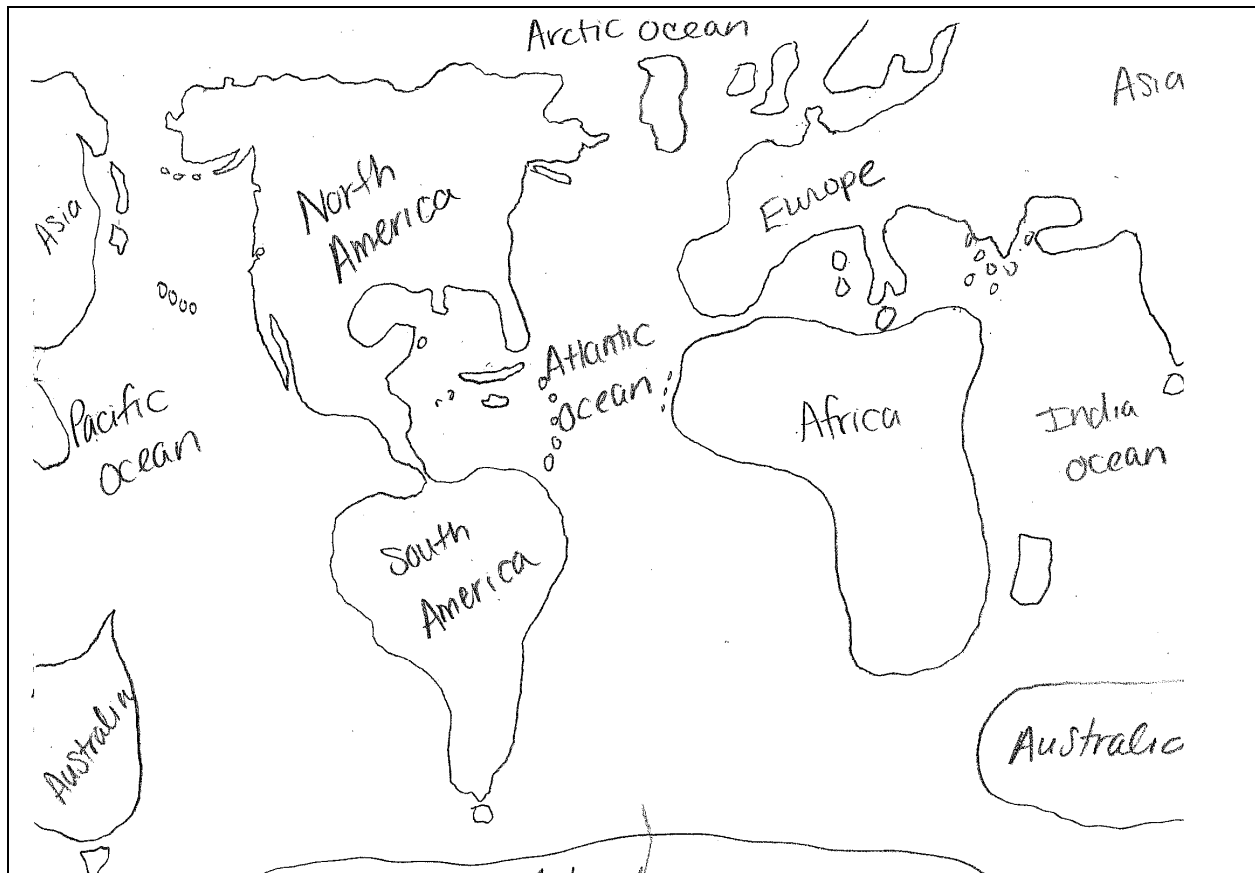 Arctic ocean
Asia
Asia
North
America
Europe
Atlantic
ocean
Pacific
ocean
Africa
India
ocean
South
America
Australia
Australia